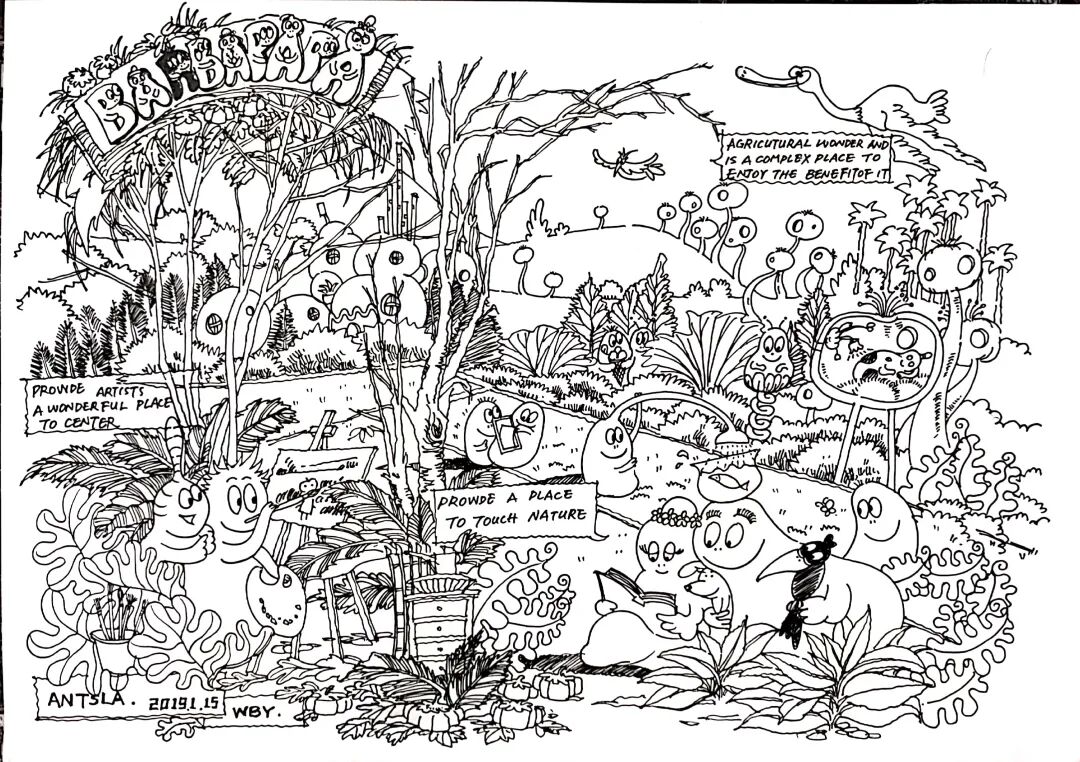 BARBAPAPA
AGRICUTURAL WONDER AND
IS A COMPLEX PLACE TO
ENJOY THE BENEFITOF IT
PROVIDE ARTISTS
A WONDERFUL PLACE
TO CENTER
PROVIDE A PLACE
TO TOUCH NATURE
ANTSLA. 2019.1.15
WBY.